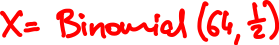 X= Binomial (64, 1/2)